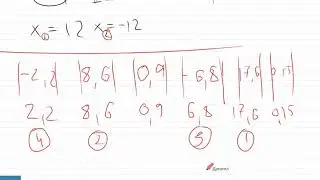 x₁ = 12 x₂ = -12
|-2,2| |8,6| |0,9| |-6,8| |17,6| |0,15|
2,2 8,6 0,9 6,8 17,6 0,15
4 2 3 1